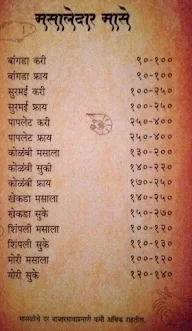 मसालेदार मासे
बांगडा करी ९०-१००
बांगडा फ्राय ९०-१००
सुरमई करी १००-२५०
सुरमई फ्राय १००-२५०
पापलेट करी २५०-४००
पापलेट फ्राय २५०-४००
कोळंबी मसाला १३०-२००
कोळंबी सुकी १४०-२२०
कोळंबी फ्राय १७०-२५०
खेकडा मसाला १४०-२५०
खेकडा सुके १५०-२७०
शिंपली मसाला १००-१२०
शिंपली सुके ११०-१३०
मोरी मसाला १००-१२०
मोरी सुके १२०-१४०
मासळीचे दर बाजारभावाप्रमाणे कमी अधिक राहतील.